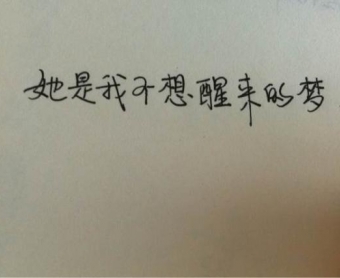 她是我不想醒来的梦